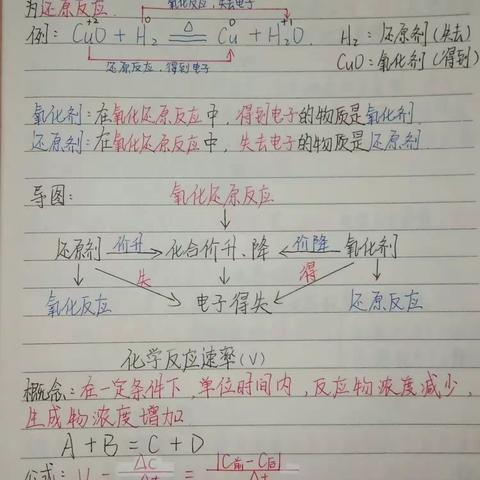 为还原反应.
氧化反应,失去电子
+2 0 0 +1
例: CuO + H₂ △ Cu + H₂O. H₂: 还原剂(失去)
还原反应, 得到电子 CuO: 氧化剂(得到)
氧化剂: 在氧化还原反应中, 得到电子的物质是氧化剂.
还原剂: 在氧化还原反应中, 失去电子的物质是还原剂.
导图: 氧化还原反应
还原剂 价升 化合价升、降 价降 氧化剂
失 得
氧化反应 电子得失 还原反应
化学反应速率(V)
概念: 在一定条件下, 单位时间内, 反应物浓度减少,
生成物浓度增加.
A + B = C + D
公式: V = Δc = |C前-C后|